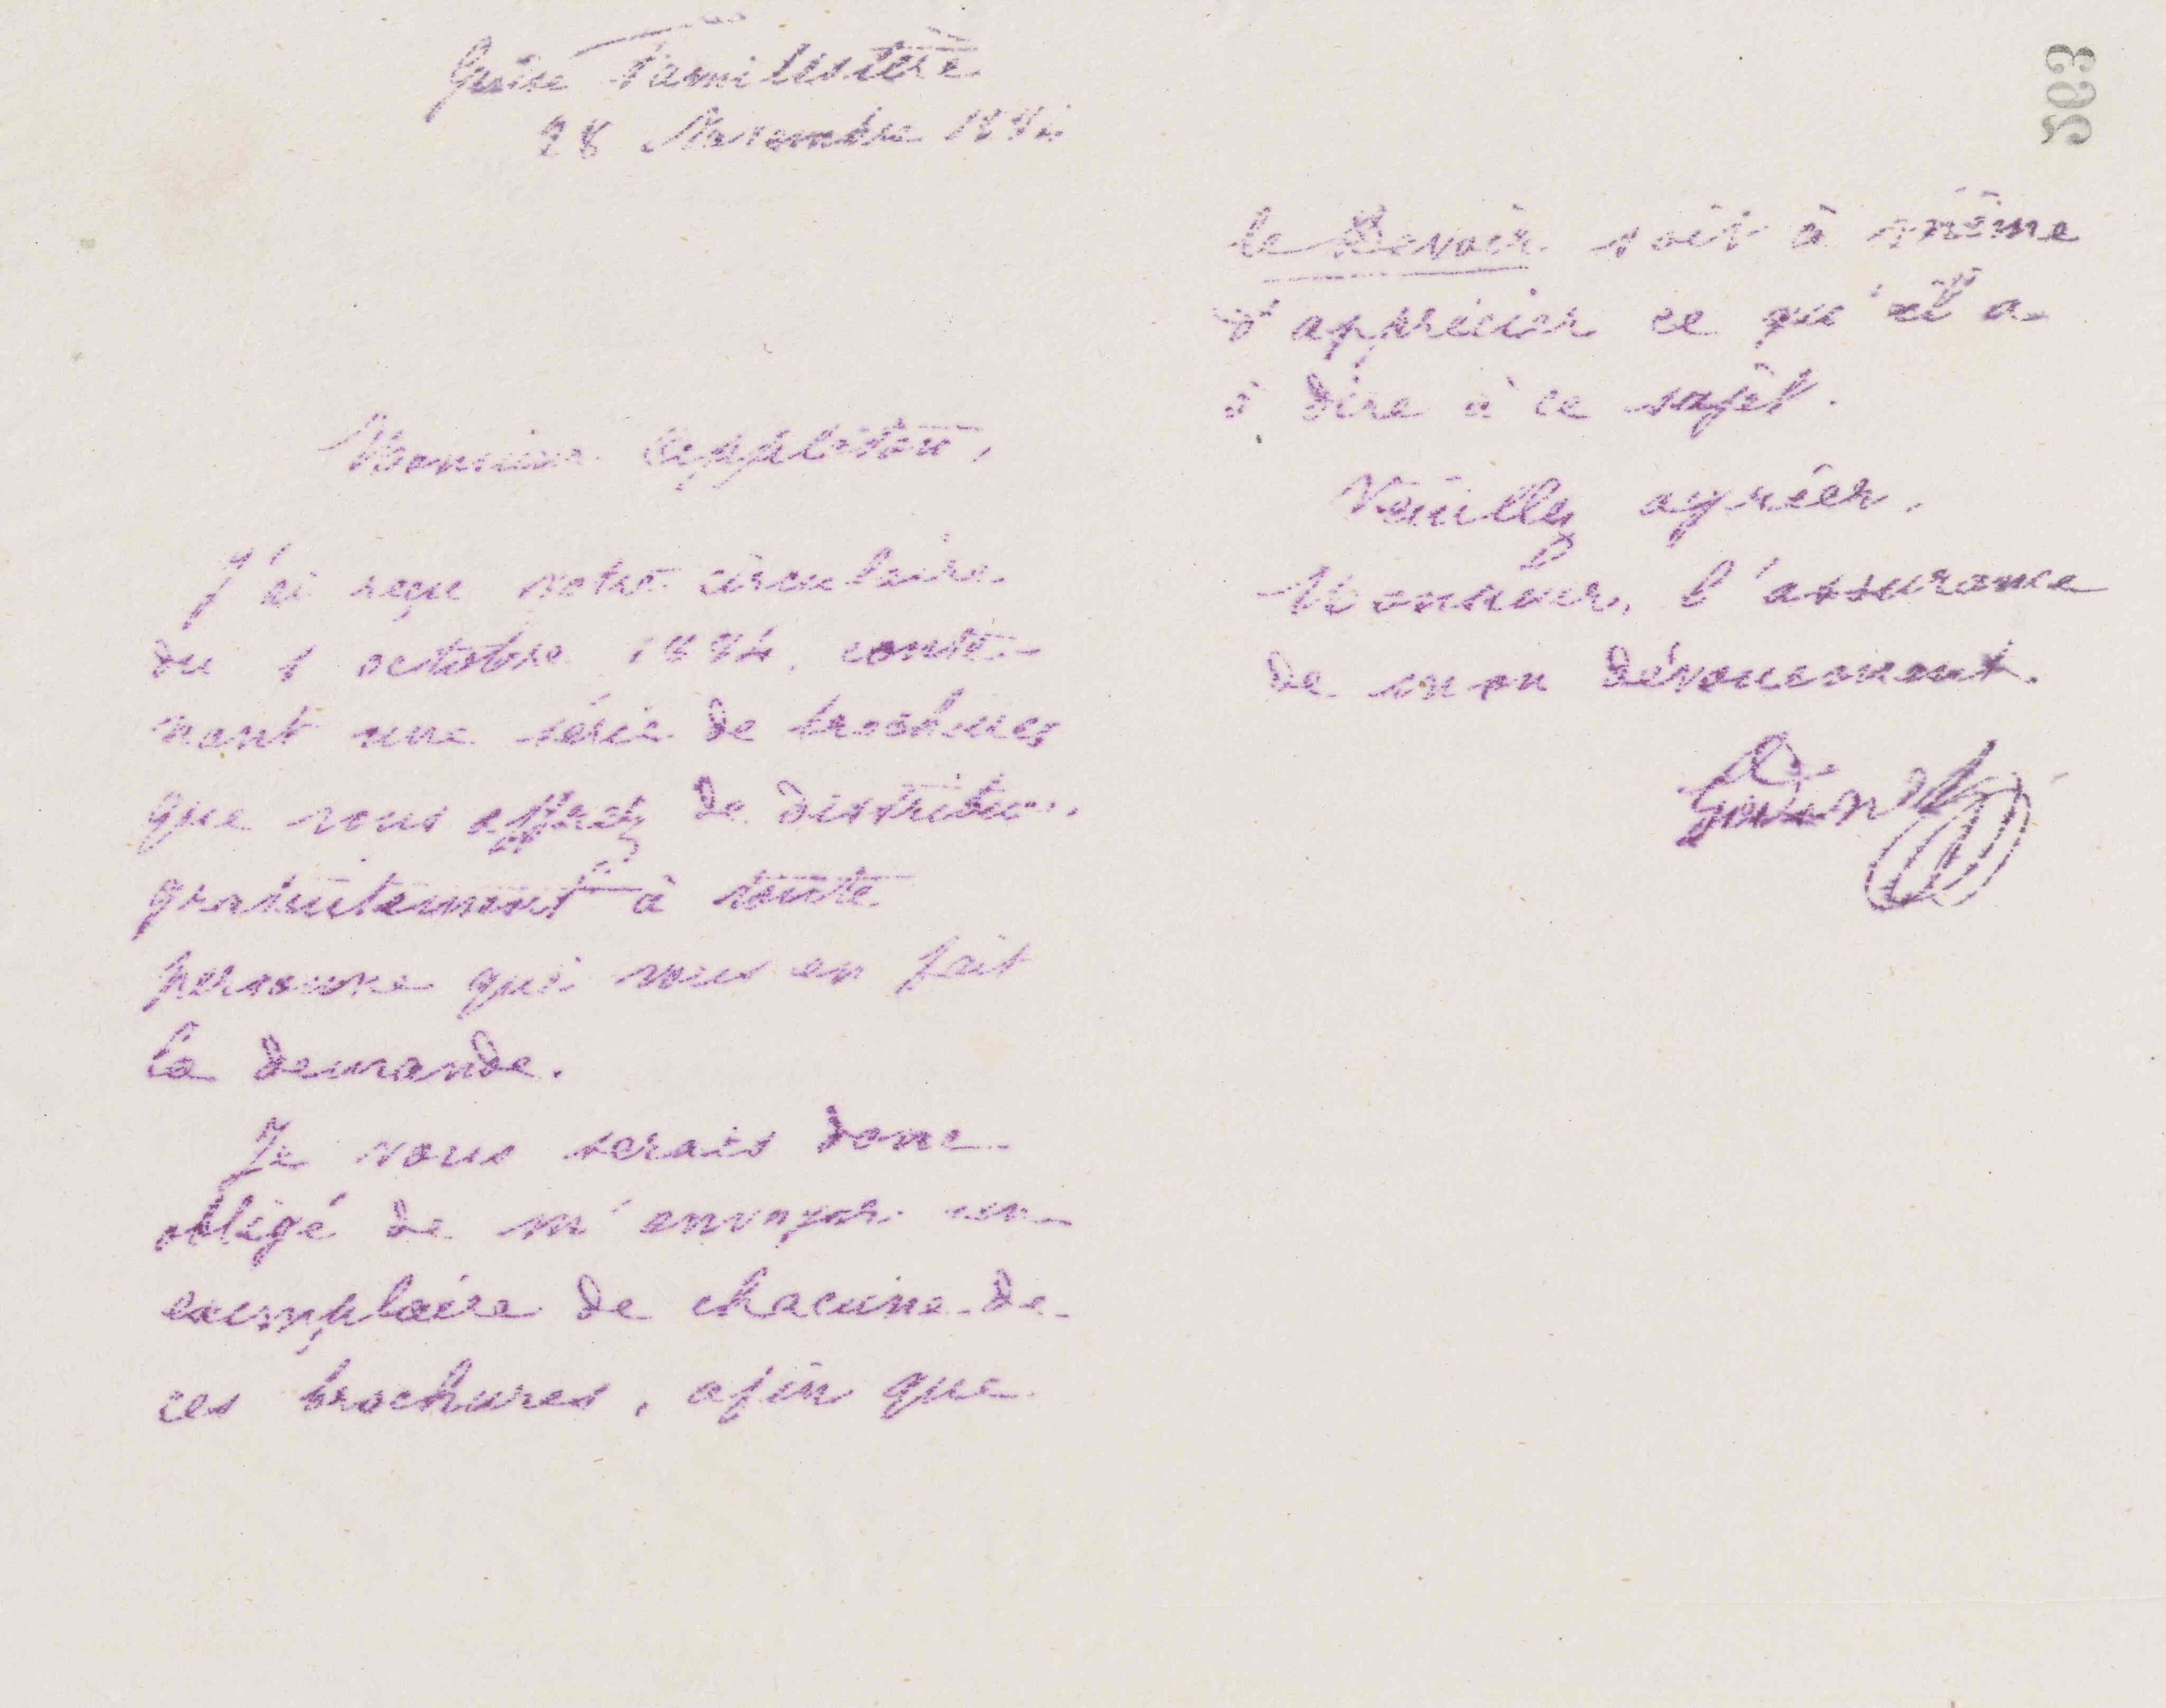 Guise Familistère
28 Novembre 1884
Monsieur Appleton,
J'ai reçu votre circulaire
du 1 octobre 1884, conte-
nant une série de brochures
que vous offrez de distribuer
gratuitement à toute
personne qui vous en fait
la demande.
Je vous serais donc
obligé de m'envoyer un
exemplaire de chacune de
ces brochures, afin que
503
le Devoir soit à même
d'apprécier ce qu'il a
à dire à ce sujet.
Veuillez agréer,
Monsieur, l'assurance
de mon dévouement.
Godin